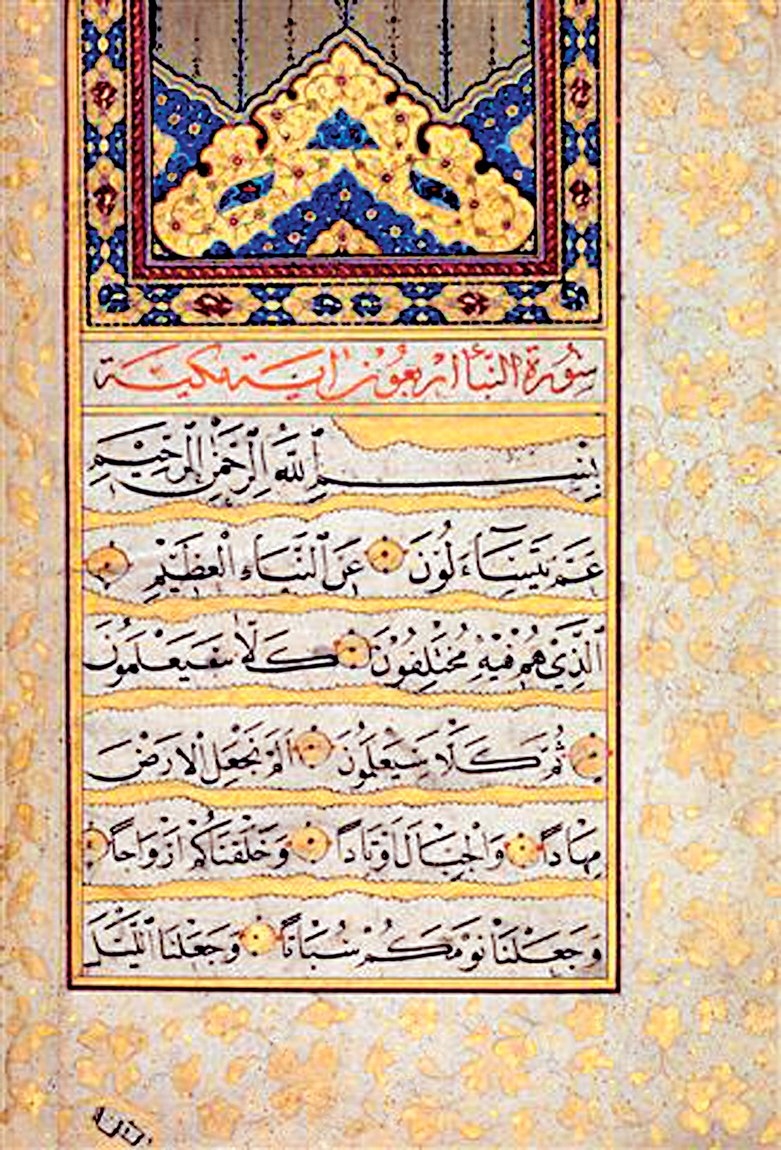 سورة النبأ اربعون اية مكية
بِسْمِ اللَّهِ الرَّحْمَٰنِ الرَّحِيمِ
عَمَّ يَتَسَاءَلُونَ عَنِ النَّبَاءِ الْعَظِيمِ
الَّذِي هُمْ فِيهِ مُخْتَلِفُونَ كَلَّا سَيَعْلَمُونَ
ثُمَّ كَلَّا سَيَعْلَمُونَ اَلَمْ نَجْعَلِ الْارَضَ
مِهَادًا وَالْجِبَالَ اَوْتَادًا وَخَلَقْنَاكُمْ اَزْوَاجًا
وَجَعَلْنَا نَوْمَكُمْ سُبَاتًا وَجَعَلْنَا اللَّيْلَ